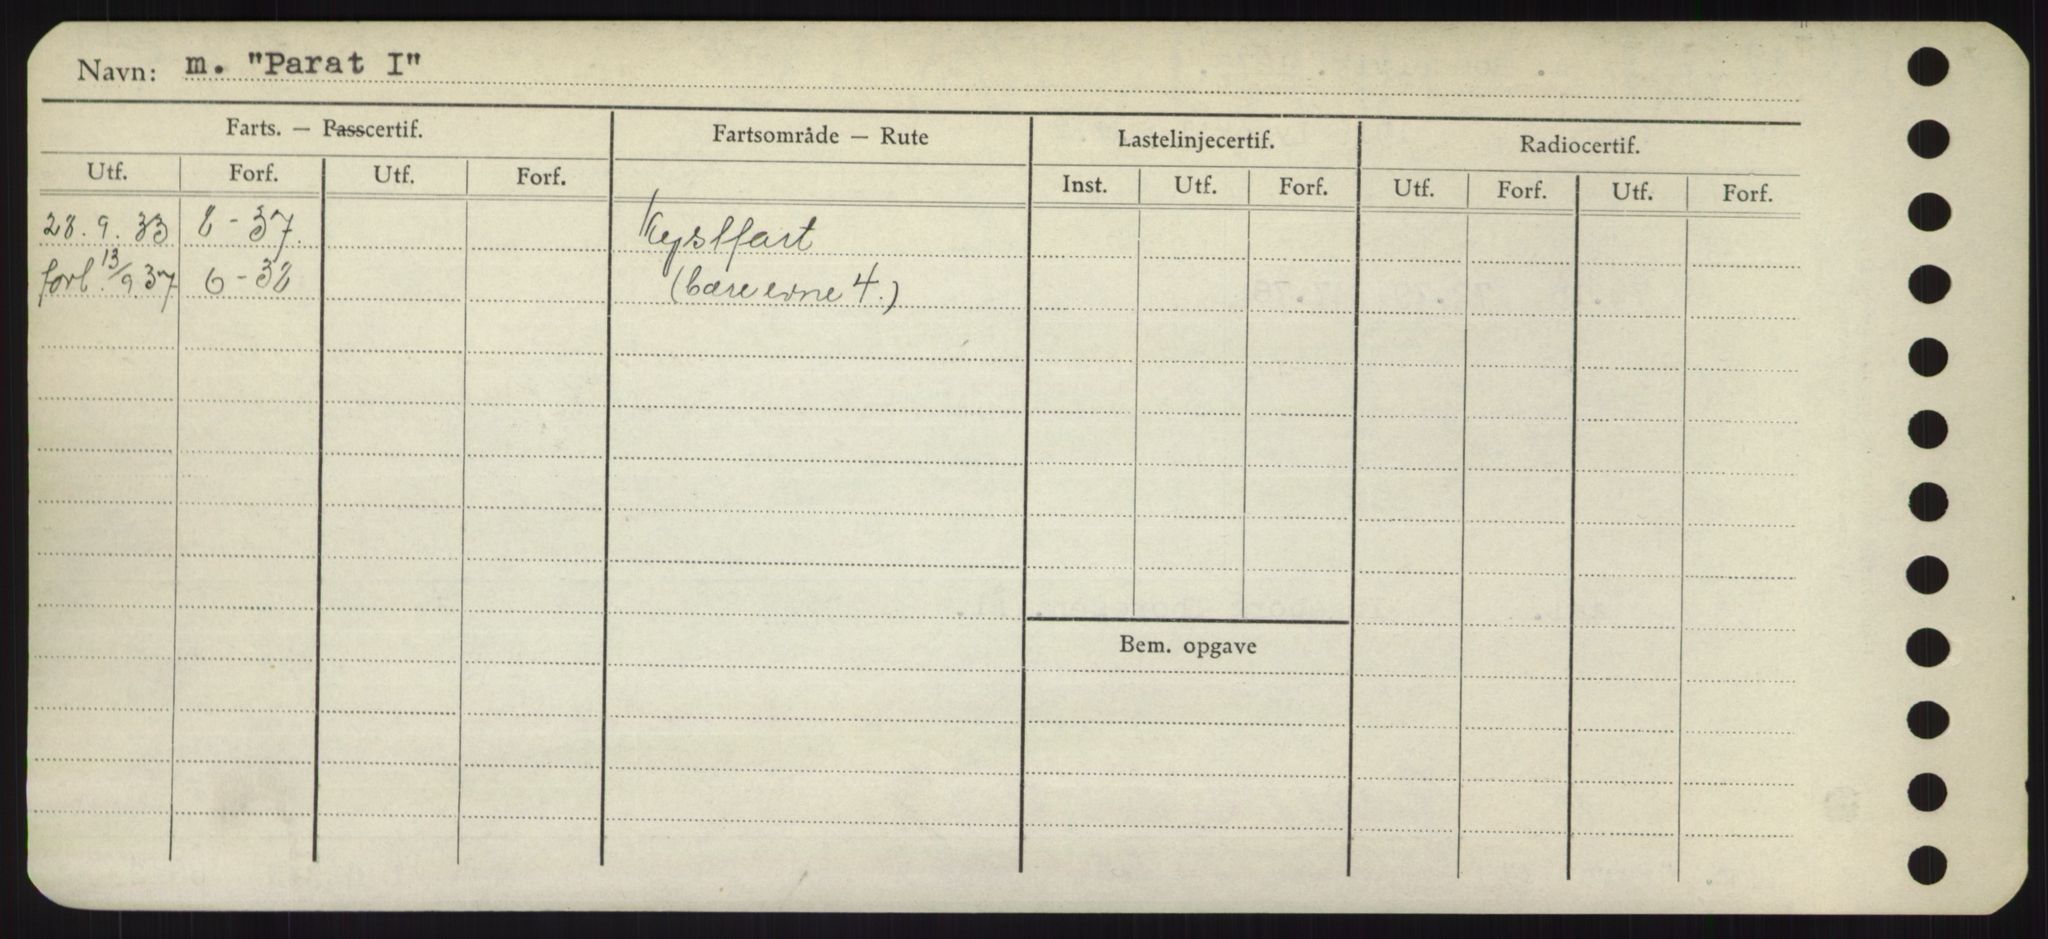 Navn: m. "Parat I"
Farts. — Passcertif. Fartsområde — Rute Lastelinjecertif. Radiocertif.
Utf. Forf. Utf. Forf. Inst. Utf. Forf. Utf. Forf. Utf. Forf.
28.9.33 8-37. Kystfart
forl. 13/9.37 6-38 (bæreevne 4.)
Bem. opgave